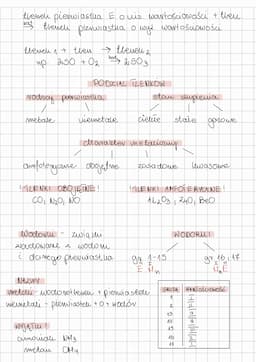 tlenek pierwiastka E o niż. wartościowości + tlen
kat. → tlenek pierwiastka o wyż. wartościowości
tlenek 1 + tlen → tlenek 2
np. 2SO2 + O2 → 2SO3
PODZIAŁ TLENKÓW
rodzaj pierwiastka stan skupienia
metale niemetale ciekłe stałe gazowe
charakter chemiczny
amfoteryczne obojętne zasadowe kwasowe
! TLENKI OBOJĘTNE ! ! TLENKI AMFOTERYCZNE !
CO, N2O, NO Al2O3, ZnO, BeO
Wodorki - związki
zbudowane z wodoru
i danego pierwiastka
WODORKI
gr. 1-15 gr. 16 i 17
E Hn HnE
Nazwy
metali: wodorotlenku + pierwiastek
niemetali - pierwiastek + o + wodór
WYJĄTKI
amoniak NH3
metan CH4
GRUPA WARTOŚCIOWOŚĆ
1 I
2 II
13 III
14 IV
15 III
16 II
17 I